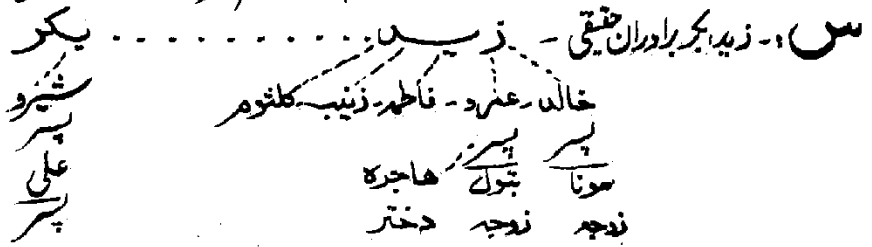 س:- زید، بکر برادران حقیقی - زید .......... بکر
خالد - عمرو - فاطمہ - زینب - کلثوم شیرو
پسر پسر پسر
مونا بتول ھاجرہ علی
زوجہ زوجہ دختر پسر